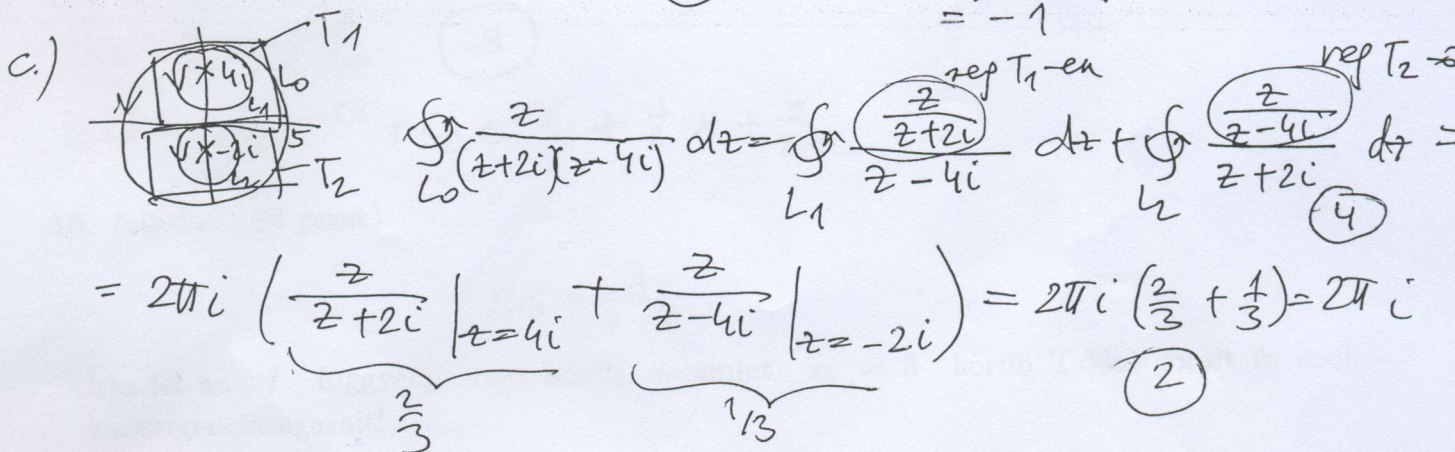 = -1
c.)
T1
x 4i L0
L1
5
x -2i
L2
T2
reg T1-en
reg T2-
∮L0 z/((z+2i)(z-4i)) dz = ∮L1 (z/(z+2i))/(z-4i) dz + ∮L2 (z/(z-4i))/(z+2i) dz =
4
= 2πi ( z/(z+2i) |z=4i + z/(z-4i) |z=-2i ) = 2πi (2/3 + 1/3) = 2πi
2/3 1/3 2